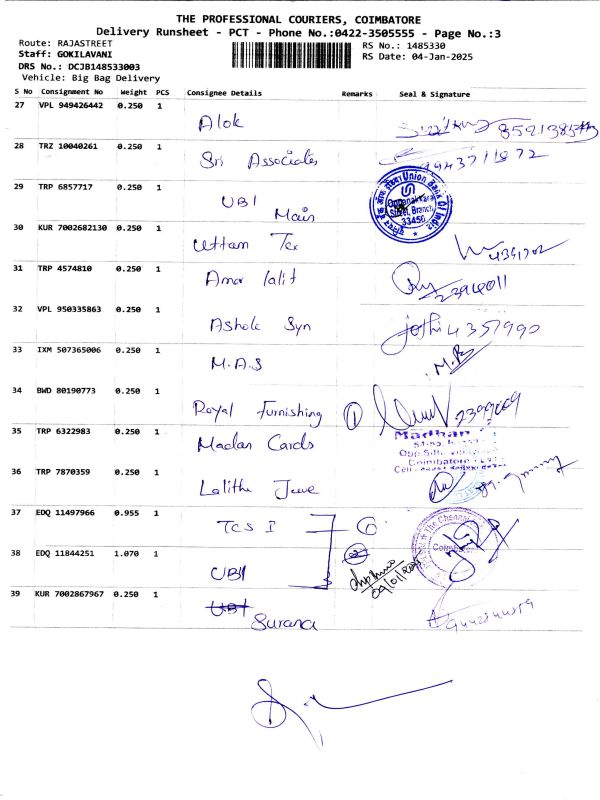 THE PROFESSIONAL COURIERS, COIMBATORE
Delivery Runsheet - PCT - Phone No.:0422-3505555 - Page No.:3
Route: RAJASTREET RS No.: 1485330
Staff: GOKILAVANI RS Date: 04-Jan-2025
DRS No.: DCJB148533003
Vehicle: Big Bag Delivery
S No Consignment No Weight PCS Consignee Details Remarks Seal & Signature
27 VPL 949426442 0.250 1
Alok
28 TRZ 10040261 0.250 1
Sri Associates 9943711872
29 TRP 6857717 0.250 1
UBI Main
Union Bank Of India
30 KUR 7002682130 0.250 1
Uttam Tex
31 TRP 4574810 0.250 1
Amar lalit
32 VPL 950335863 0.250 1
Ashok Syn Joshi 4357990
33 IXM 507365006 0.250 1
M.A.S
34 BWD 80190773 0.250 1
Royal Furnishing 1
35 TRP 6322983 0.250 1
Madan Cards
Madhan
Coimbatore
36 TRP 7870359 0.250 1
Lalitha Juve
37 EDQ 11497966 0.955 1
TCS I
The Chennai
38 EDQ 11844251 1.070 1
UBI
39 KUR 7002867967 0.250 1
UBI
Surana